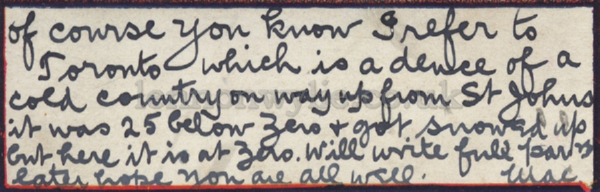 of course you know I refer to
Toronto which is a deuce of a
cold country on way up from St Johns
it was 25 below Zero & got snowed up
but here it is at Zero. Will write full par
later hope you are all well. Mac